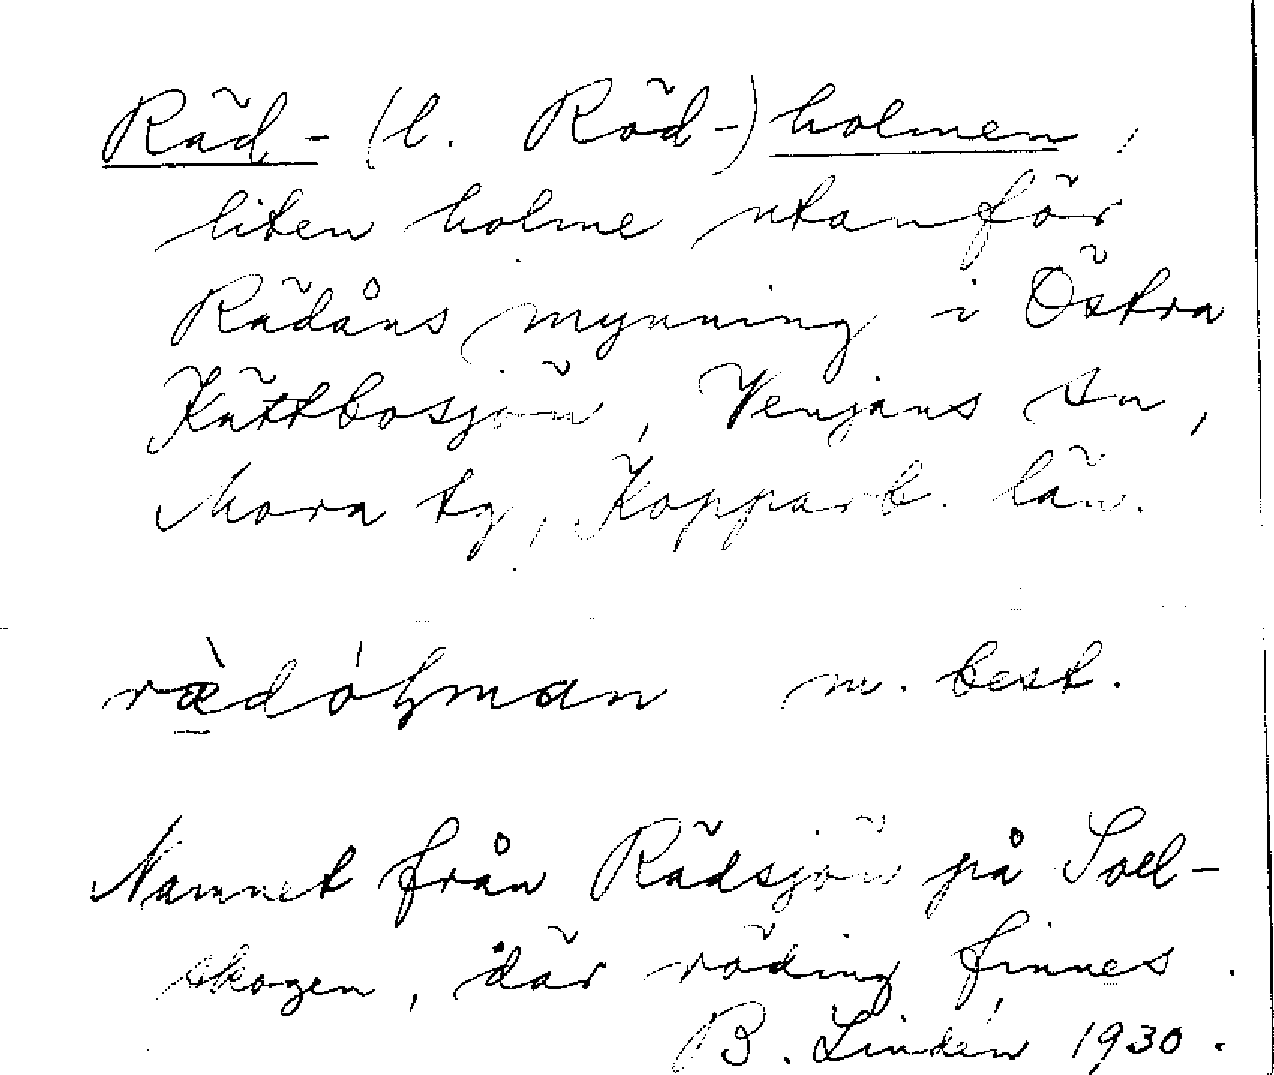 Räd- (l. Röd-) holmen,
liten holme utanför
Rädåns mynning i Östra
Kättbosjön, Venjans sn,
Mora tg, Kopparb. län.
rædȯłman m. best.
Namnet från Rädsjön på Soll-
skogen, där röding finnes.
B. Lindén 1930.